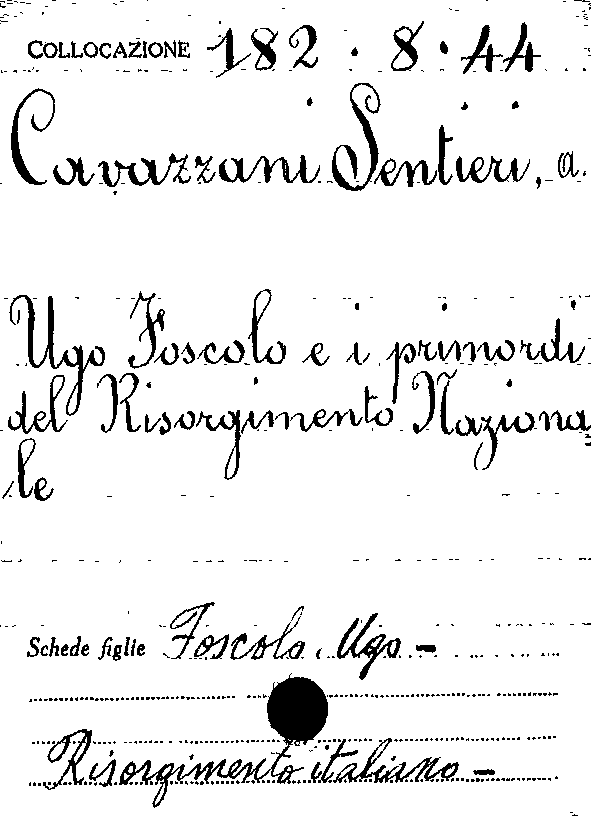 COLLOCAZIONE 182.8.44
Cavazzani Sentieri, a.
Ugo Foscolo e i primordi
del Risorgimento Naziona
le
Schede figlie Foscolo, Ugo –
Risorgimento italiano –